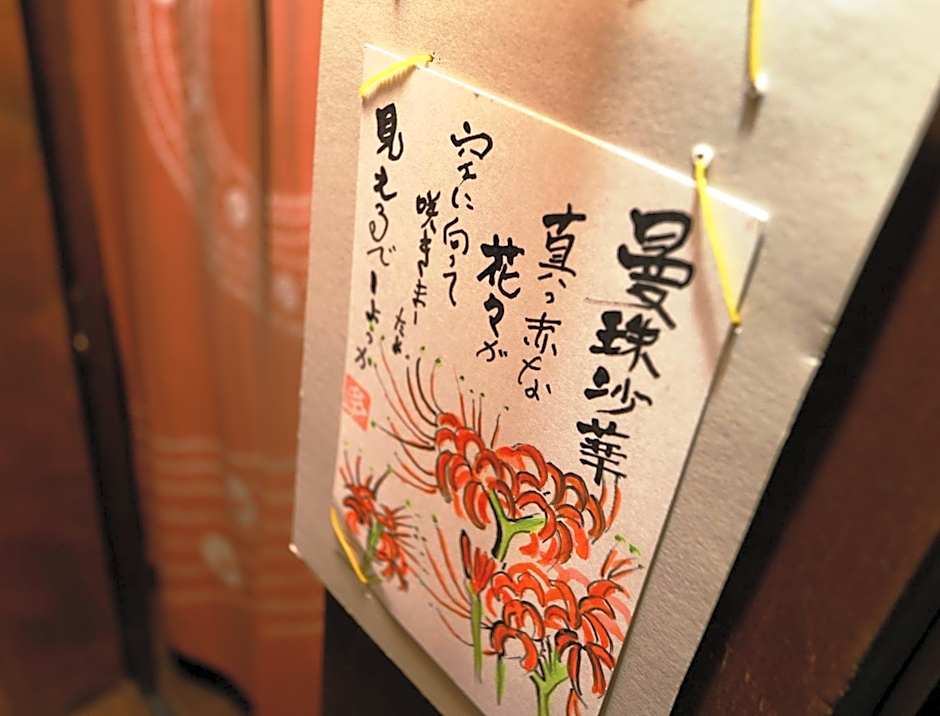 曼珠沙華
真っ赤な
花々が
空に向って
咲きましたね。
見えるでしょうか